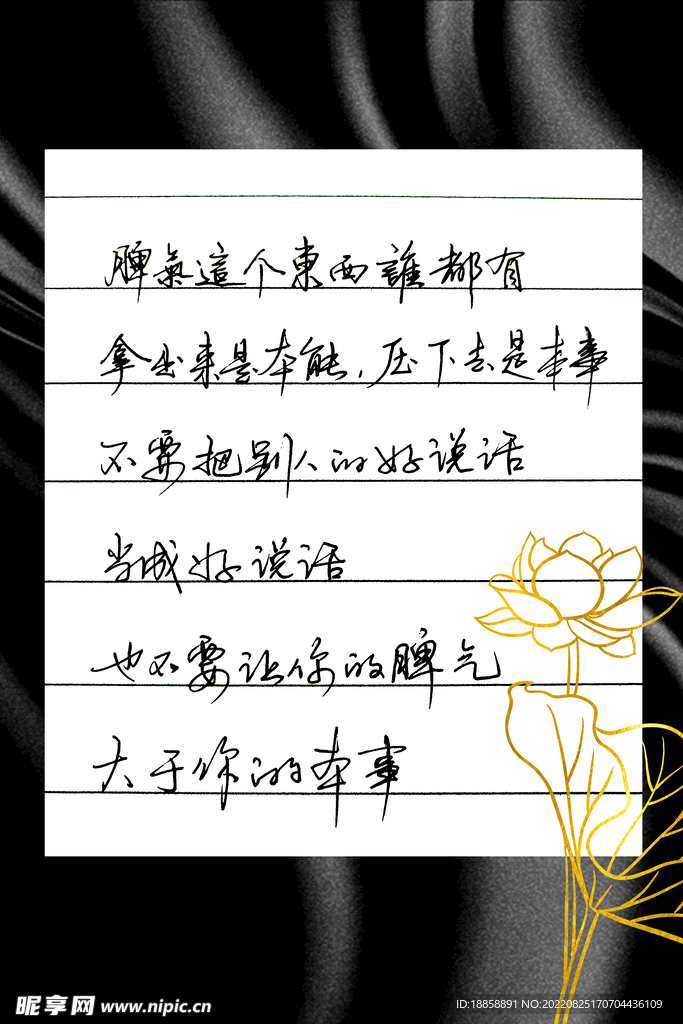 脾氣這个東西誰都有
拿出来是本能，压下去是本事
不要把别人的好说话
当成好说话
也不要让你的脾气
大于你的本事
昵享网 www.nipic.cn
ID:18858891 NO:20220825170704436109